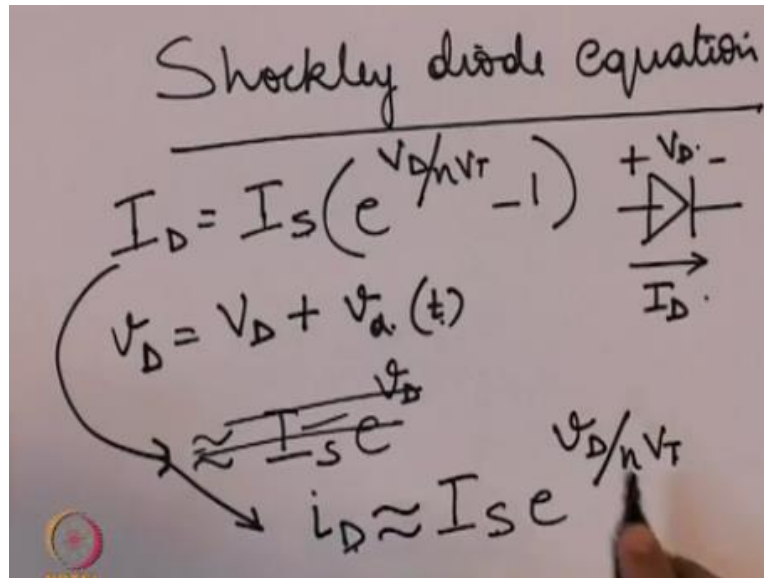 Shockley diode equation
I_D = I_S (e^{V_D/nV_T} - 1)
+ V_D. -
I_D.
v_D = V_D + v_d. (t)
≈ I_S e^{v_D}
i_D ≈ I_S e^{v_D/nV_T}